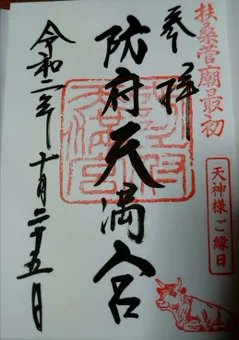 扶桑菅廟最初
奉拝
天神様ご縁日
防府天満宮
令和二年十月二十五日